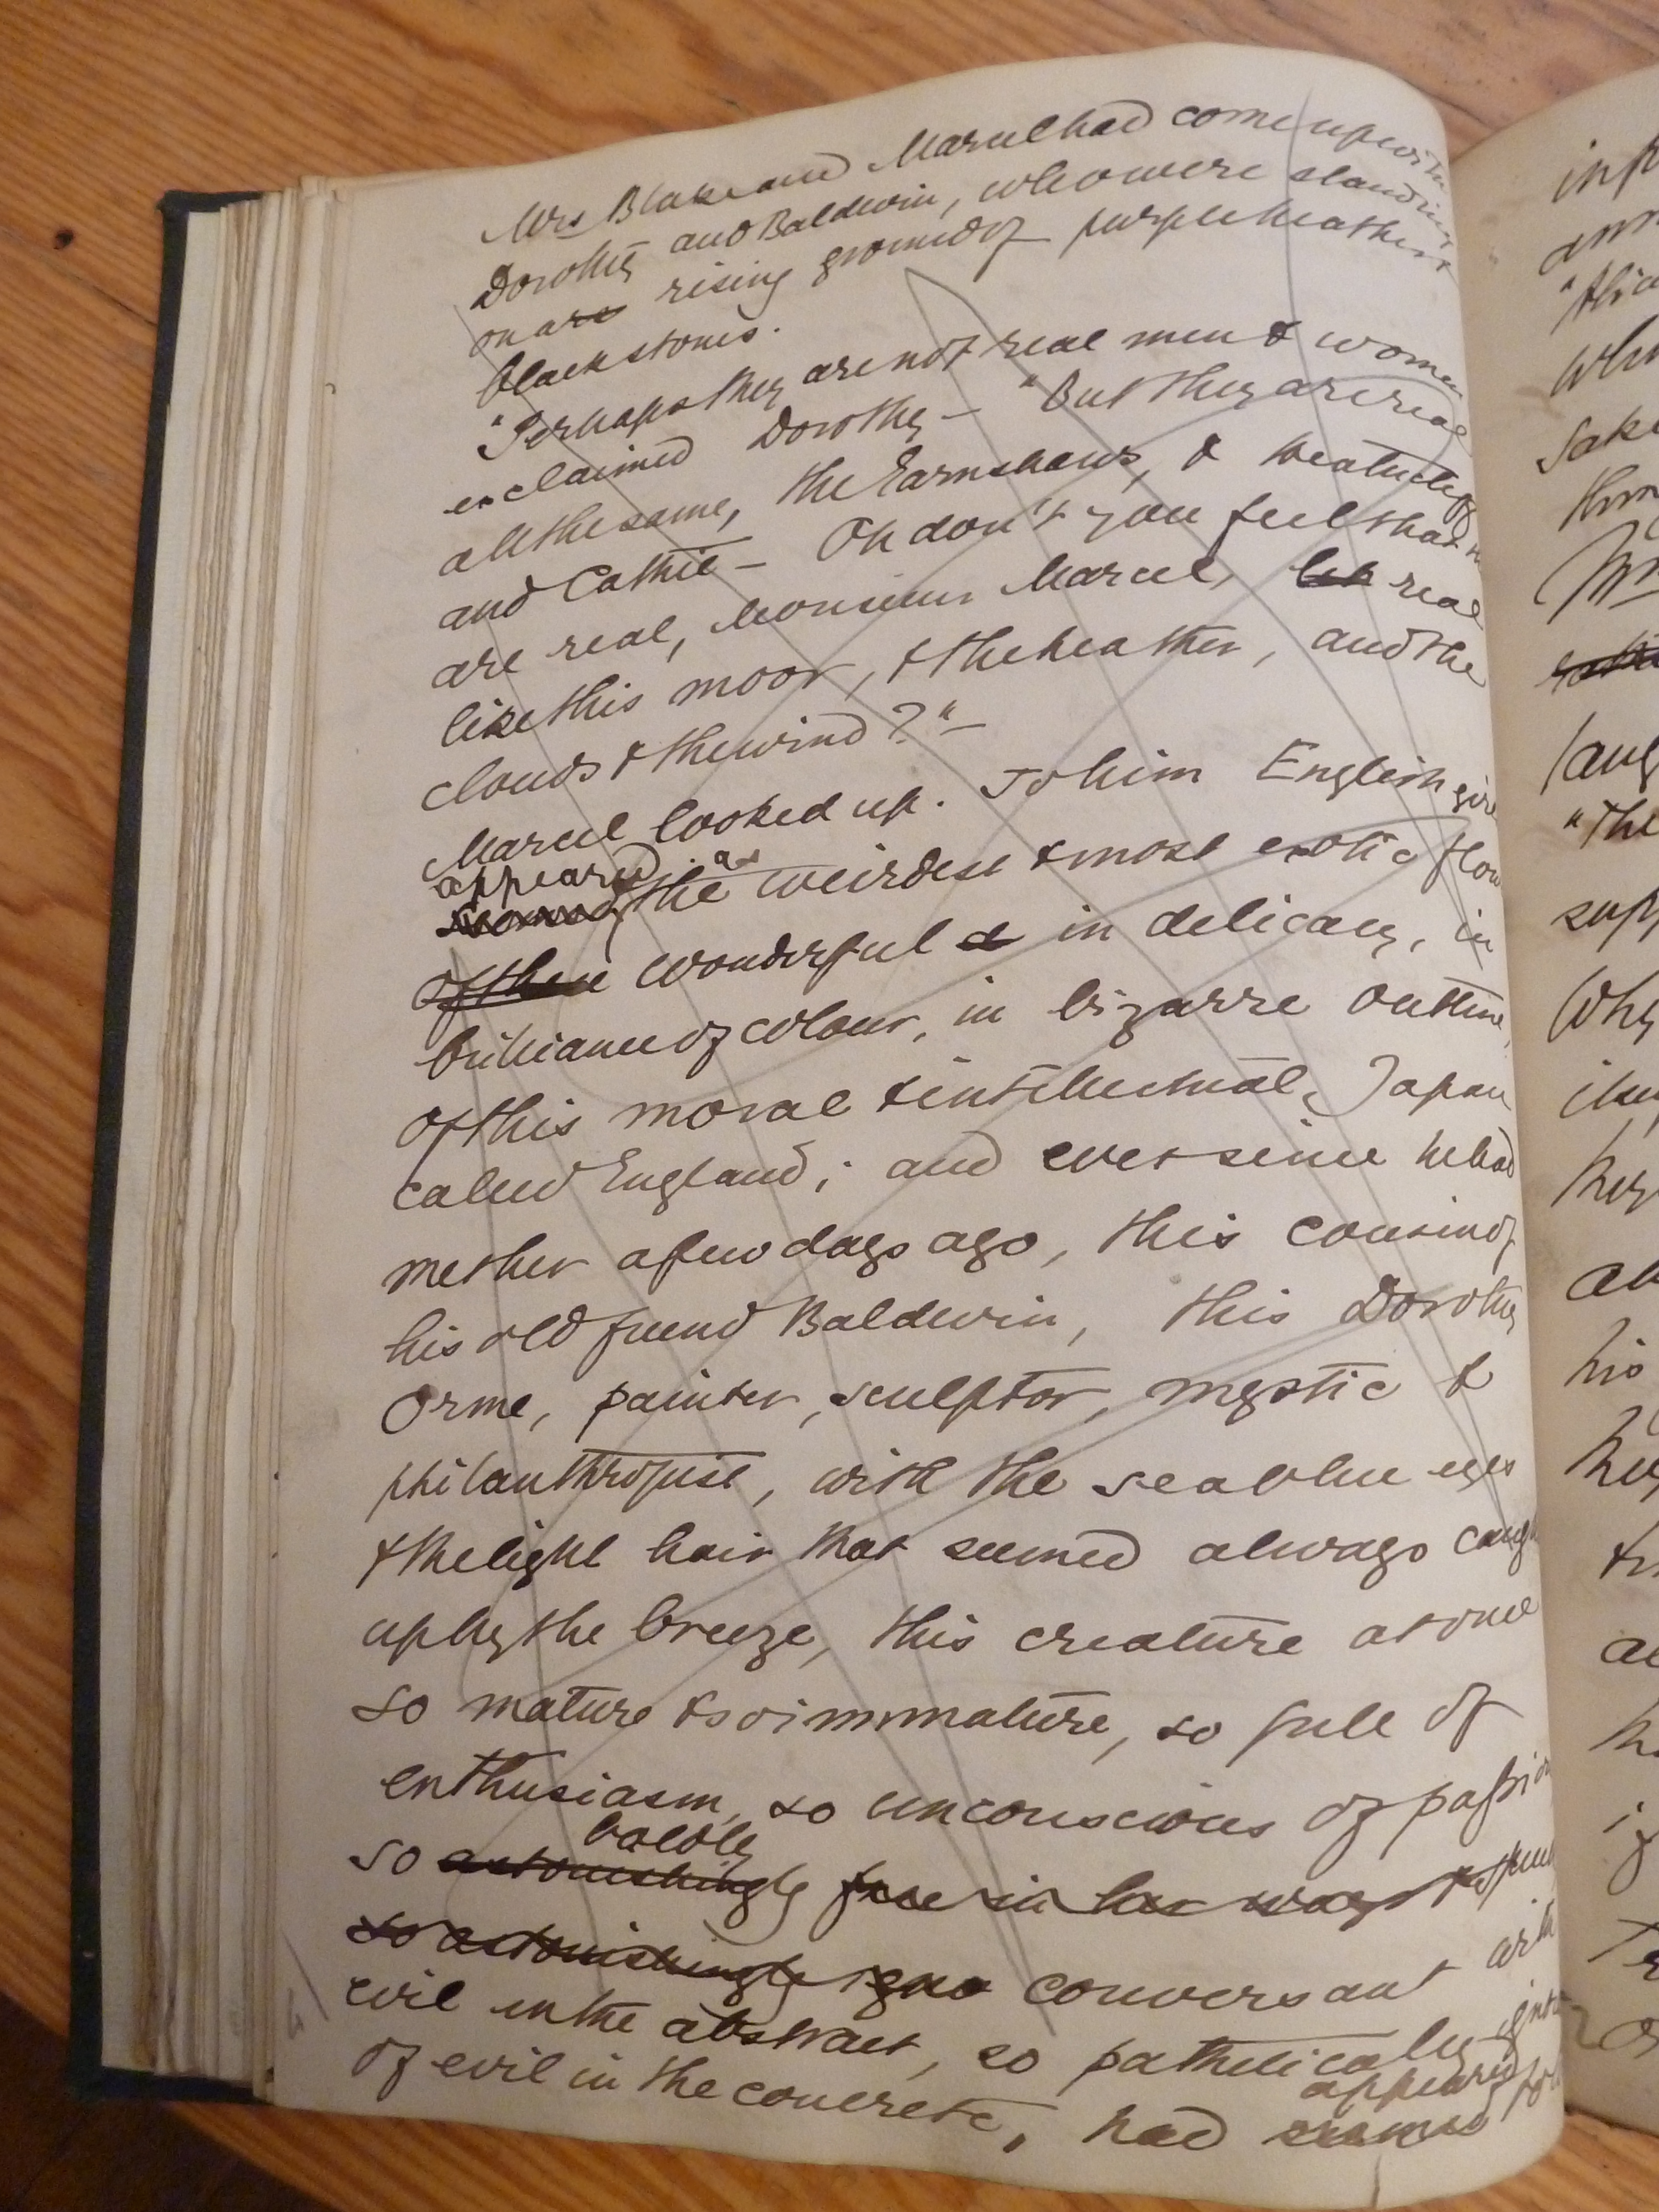 Mrs Blake and Marcel had come up with
Dorothy and Baldwin, who were standing
on a rising ground of purple heather &
black stones.
"Perhaps they are not real men & women
exclaimed Dorothy — "But they are real
all the same, the Earnshaws, & Heathcliff
and Cathie — Oh don't you feel that
are real, Monsieur Marcel, real
like this moor, & the heather, and the
clouds & the wind?" —
Marcel looked up. To him English girls
appeared as
seemed the weirdest & most exotic flow
of these wonderful & in delicacy, in
brilliance of colour, in bizarre outline,
of this moral & intellectual Japan
called England; and ever since he had
met her a few days ago, this cousin of
his old friend Baldwin, this Dorothy
Orme, painter, sculptor, mystic &
philanthropist, with the sea blue eyes
& the light hair that seemed always caugh
up by the breeze, this creature at once
so mature & so immature, so full of
enthusiasm, so unconscious of passion
boldly
so astonishingly free in her ways &
so astonishingly igno conversant with
evil in the abstract, so pathetically igno
of evil in the concrete, had seemed to
appeared
inf
ann
"thi
whi
sake
thm
Mr
laug
"The
supp
Why
his